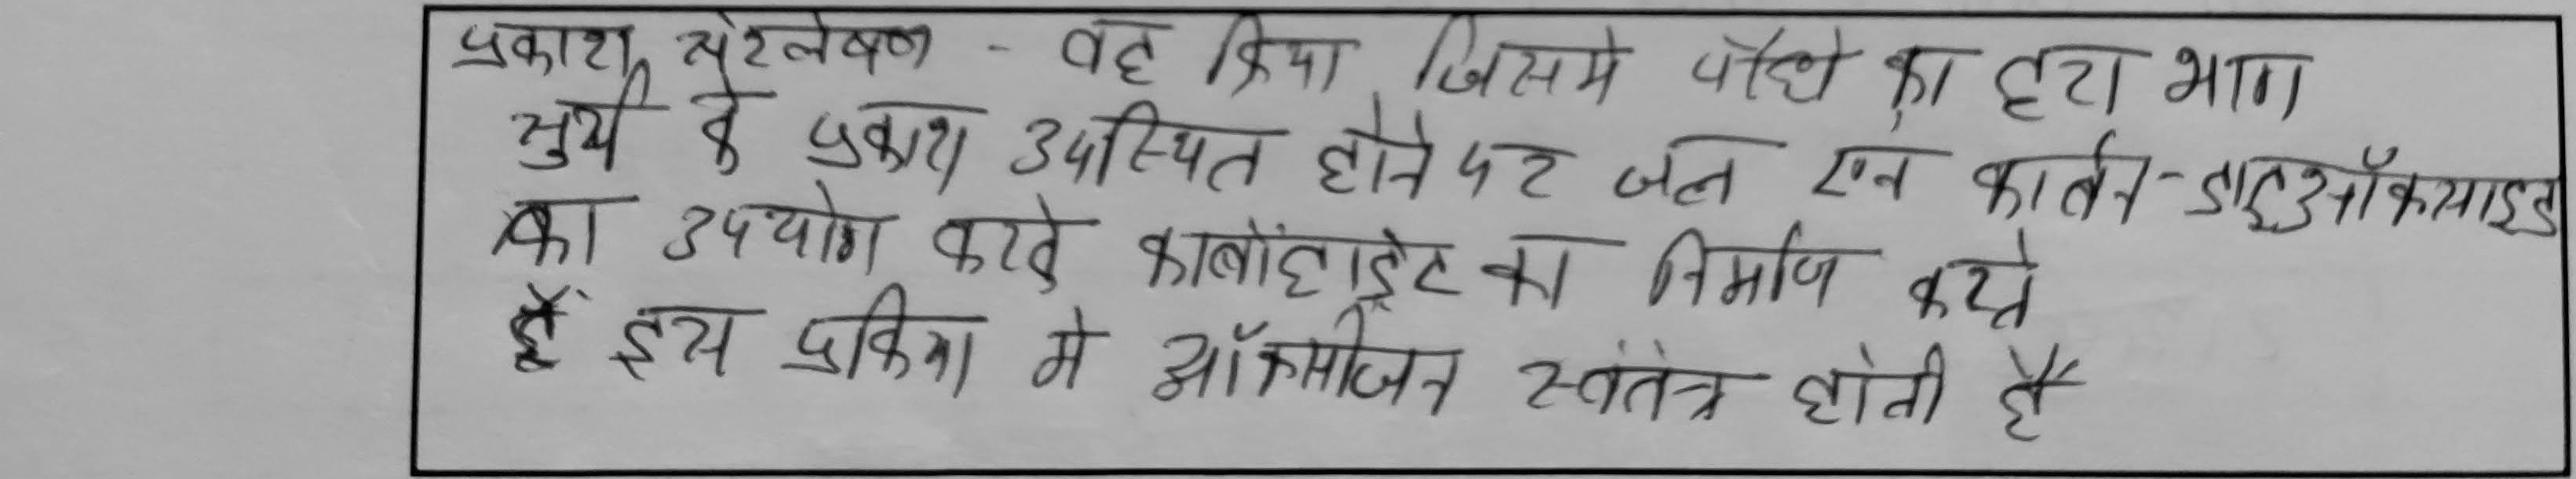 प्रकाश संश्लेषण - वह क्रिया जिसमे पौधे का हरा भाग
सुर्य के प्रकाश उपस्थित होने पर जल एवं कार्बन-डाइऑक्साइड
का उपयोग करके कार्बोहाइड्रेट का निर्माण करते
हैं इस प्रक्रिया मे ऑक्सीजन स्वंतंत्र होती है